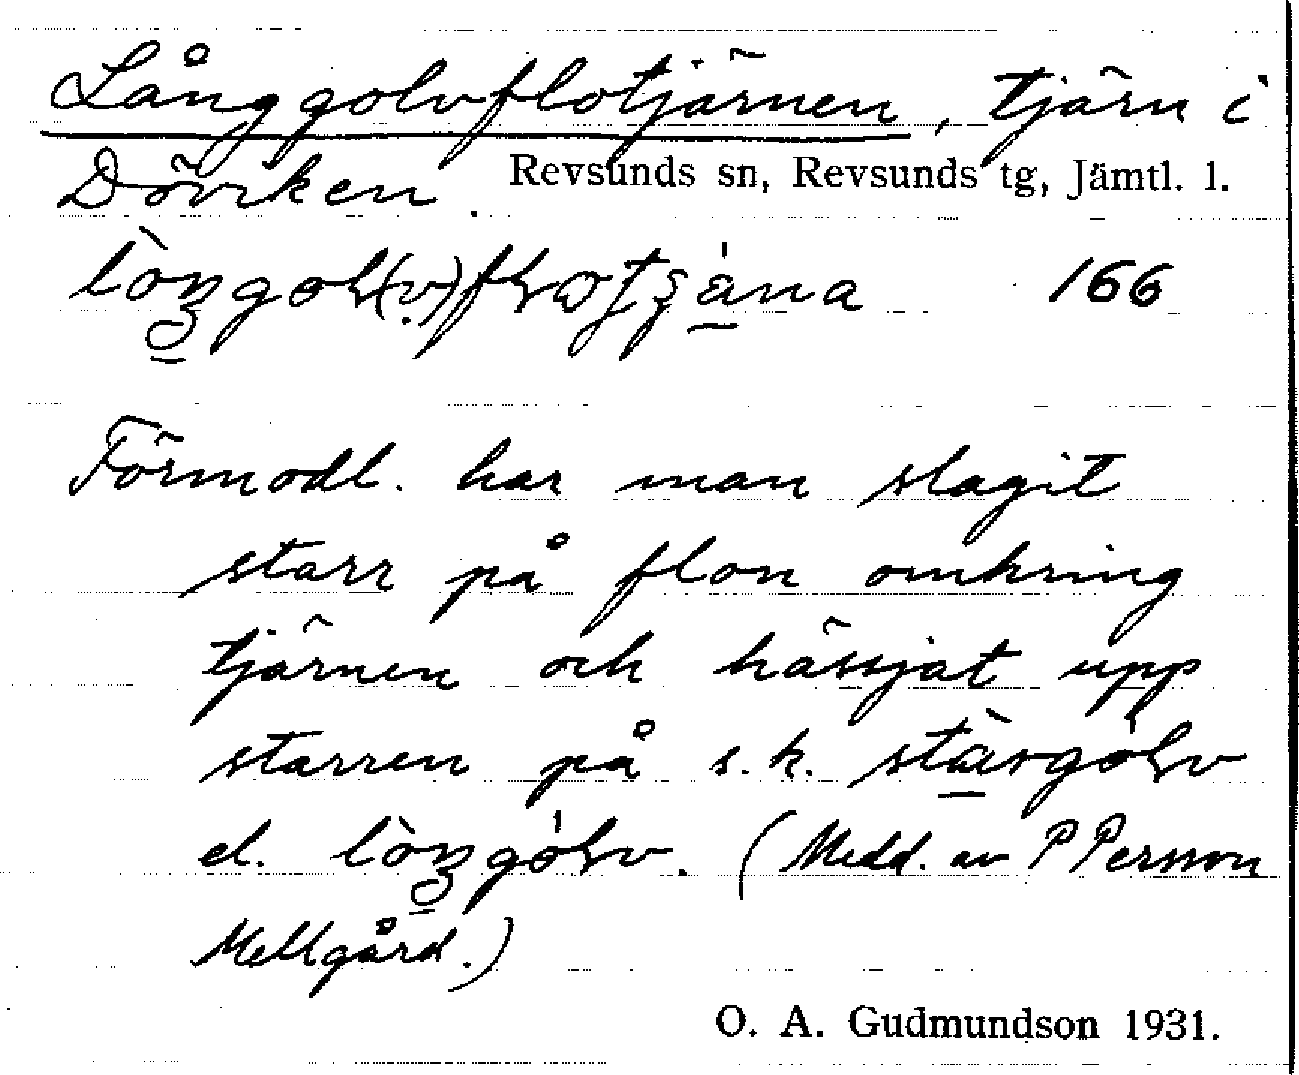 Långgolvflotjärnen, tjärn i
Döviken. Revsunds sn, Revsunds tg, Jämtl. l.
166
Förmodl. har man slagit
starr på flon omkring
tjärnen och hässjat upp
starren på s.k.
el. (Medd. av P Persson
Mellgård.)
O. A. Gudmundson 1931.